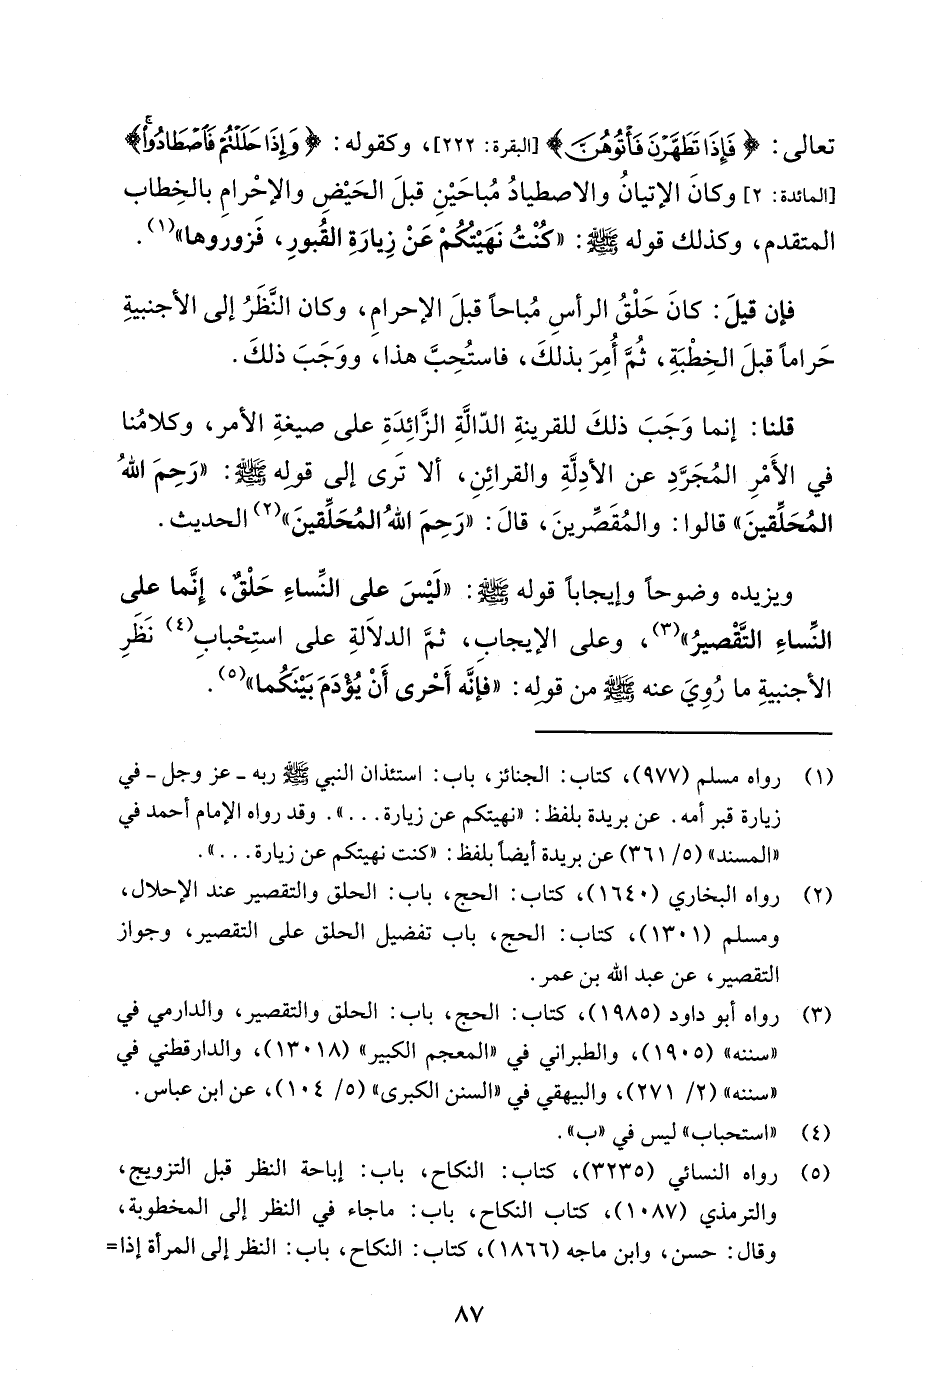 تعالى: ﴿فَإِذَا تَطَهَّرْنَ فَأْتُوهُنَّ﴾ [البقرة: ٢٢٢]، وكقوله: ﴿وَإِذَا حَلَلْتُمْ فَاصْطَادُواْ﴾
[المائدة: ٢] وكانَ الإتيانُ والاصطيادُ مُباحَيْنِ قبلَ الحَيْضِ والإحْرامِ بالخِطاب
المتقدم، وكذلك قوله ﷺ: «كُنْتُ نَهَيْتُكُمْ عَنْ زِيارَةِ القُبورِ، فَزوروها»(١).
فإن قيلَ: كانَ حَلْقُ الرأسِ مُباحاً قبلَ الإحرامِ، وكان النَّظَرُ إلى الأجنبيةِ
حَراماً قبلَ الخِطْبَةِ، ثُمَّ أُمِرَ بذلكَ، فاستُحِبَّ هذا، ووَجَبَ ذلكَ.
قلنا: إنما وَجَبَ ذلكَ للقرينةِ الدّالَّةِ الزَّائِدَةِ على صيغةِ الأمر، وكلامُنا
في الأَمْرِ المُجَرَّدِ عن الأدِلَّةِ والقرائِنِ، ألا تَرى إلى قولِه ﷺ: «رَحِمَ اللهُ
المُحَلِّقينَ» قالوا: والمُقَصِّرينَ، قالَ: «رَحِمَ اللهُ المُحَلِّقينَ»(٢) الحديث.
ويزيده وضوحاً وإيجاباً قوله ﷺ: «لَيْسَ على النِّساءِ حَلْقٌ، إنَّما على
النِّساءِ التَّقْصيرُ»(٣)، وعلى الإيجابِ، ثمَّ الدلاَلةِ على استِحْبابِ(٤) نَظَرِ
الأجنبيةِ ما رُوِيَ عنه ﷺ من قوله: «فإنَّه أَحْرى أَنْ يُؤْدَمَ بَيْنَكُما»(٥).
(١) رواه مسلم (٩٧٧)، كتاب: الجنائز، باب: استئذان النبي ﷺ ربه ـ عز وجل ـ في
زيارة قبر أمه. عن بريدة بلفظ: «نهيتكم عن زيارة...». وقد رواه الإمام أحمد في
«المسند» (٥/ ٣٦١) عن بريدة أيضاً بلفظ: «كنت نهيتكم عن زيارة...».
(٢) رواه البخاري (١٦٤٠)، كتاب: الحج، باب: الحلق والتقصير عند الإحلال،
ومسلم (١٣٠١)، كتاب: الحج، باب تفضيل الحلق على التقصير، وجواز
التقصير، عن عبد الله بن عمر.
(٣) رواه أبو داود (١٩٨٥)، كتاب: الحج، باب: الحلق والتقصير، والدارمي في
«سننه» (١٩٠٥)، والطبراني في «المعجم الكبير» (١٣٠١٨)، والدارقطني في
«سننه» (٢/ ٢٧١)، والبيهقي في «السنن الكبرى» (٥/ ١٠٤)، عن ابن عباس.
(٤) «استحباب» ليس في «ب».
(٥) رواه النسائي (٣٢٣٥)، كتاب: النكاح، باب: إباحة النظر قبل التزويج،
والترمذي (١٠٨٧)، كتاب النكاح، باب: ماجاء في النظر إلى المخطوبة،
وقال: حسن، وابن ماجه (١٨٦٦)، كتاب: النكاح، باب: النظر إلى المرأة إذا=
٨٧